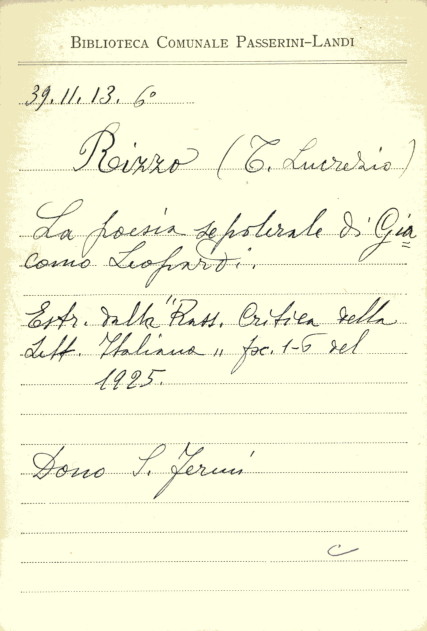 BIBLIOTECA COMUNALE PASSERINI-LANDI
39.11.13. 6°
Rizzo (T. Lucrezio)
La poesia sepolcrale di Gia=
como Leopardi.
Estr. dalla "Rass. Critica della
Lett. Italiana" fsc. 1-6 del
1925.
Dono S. Fermi
C